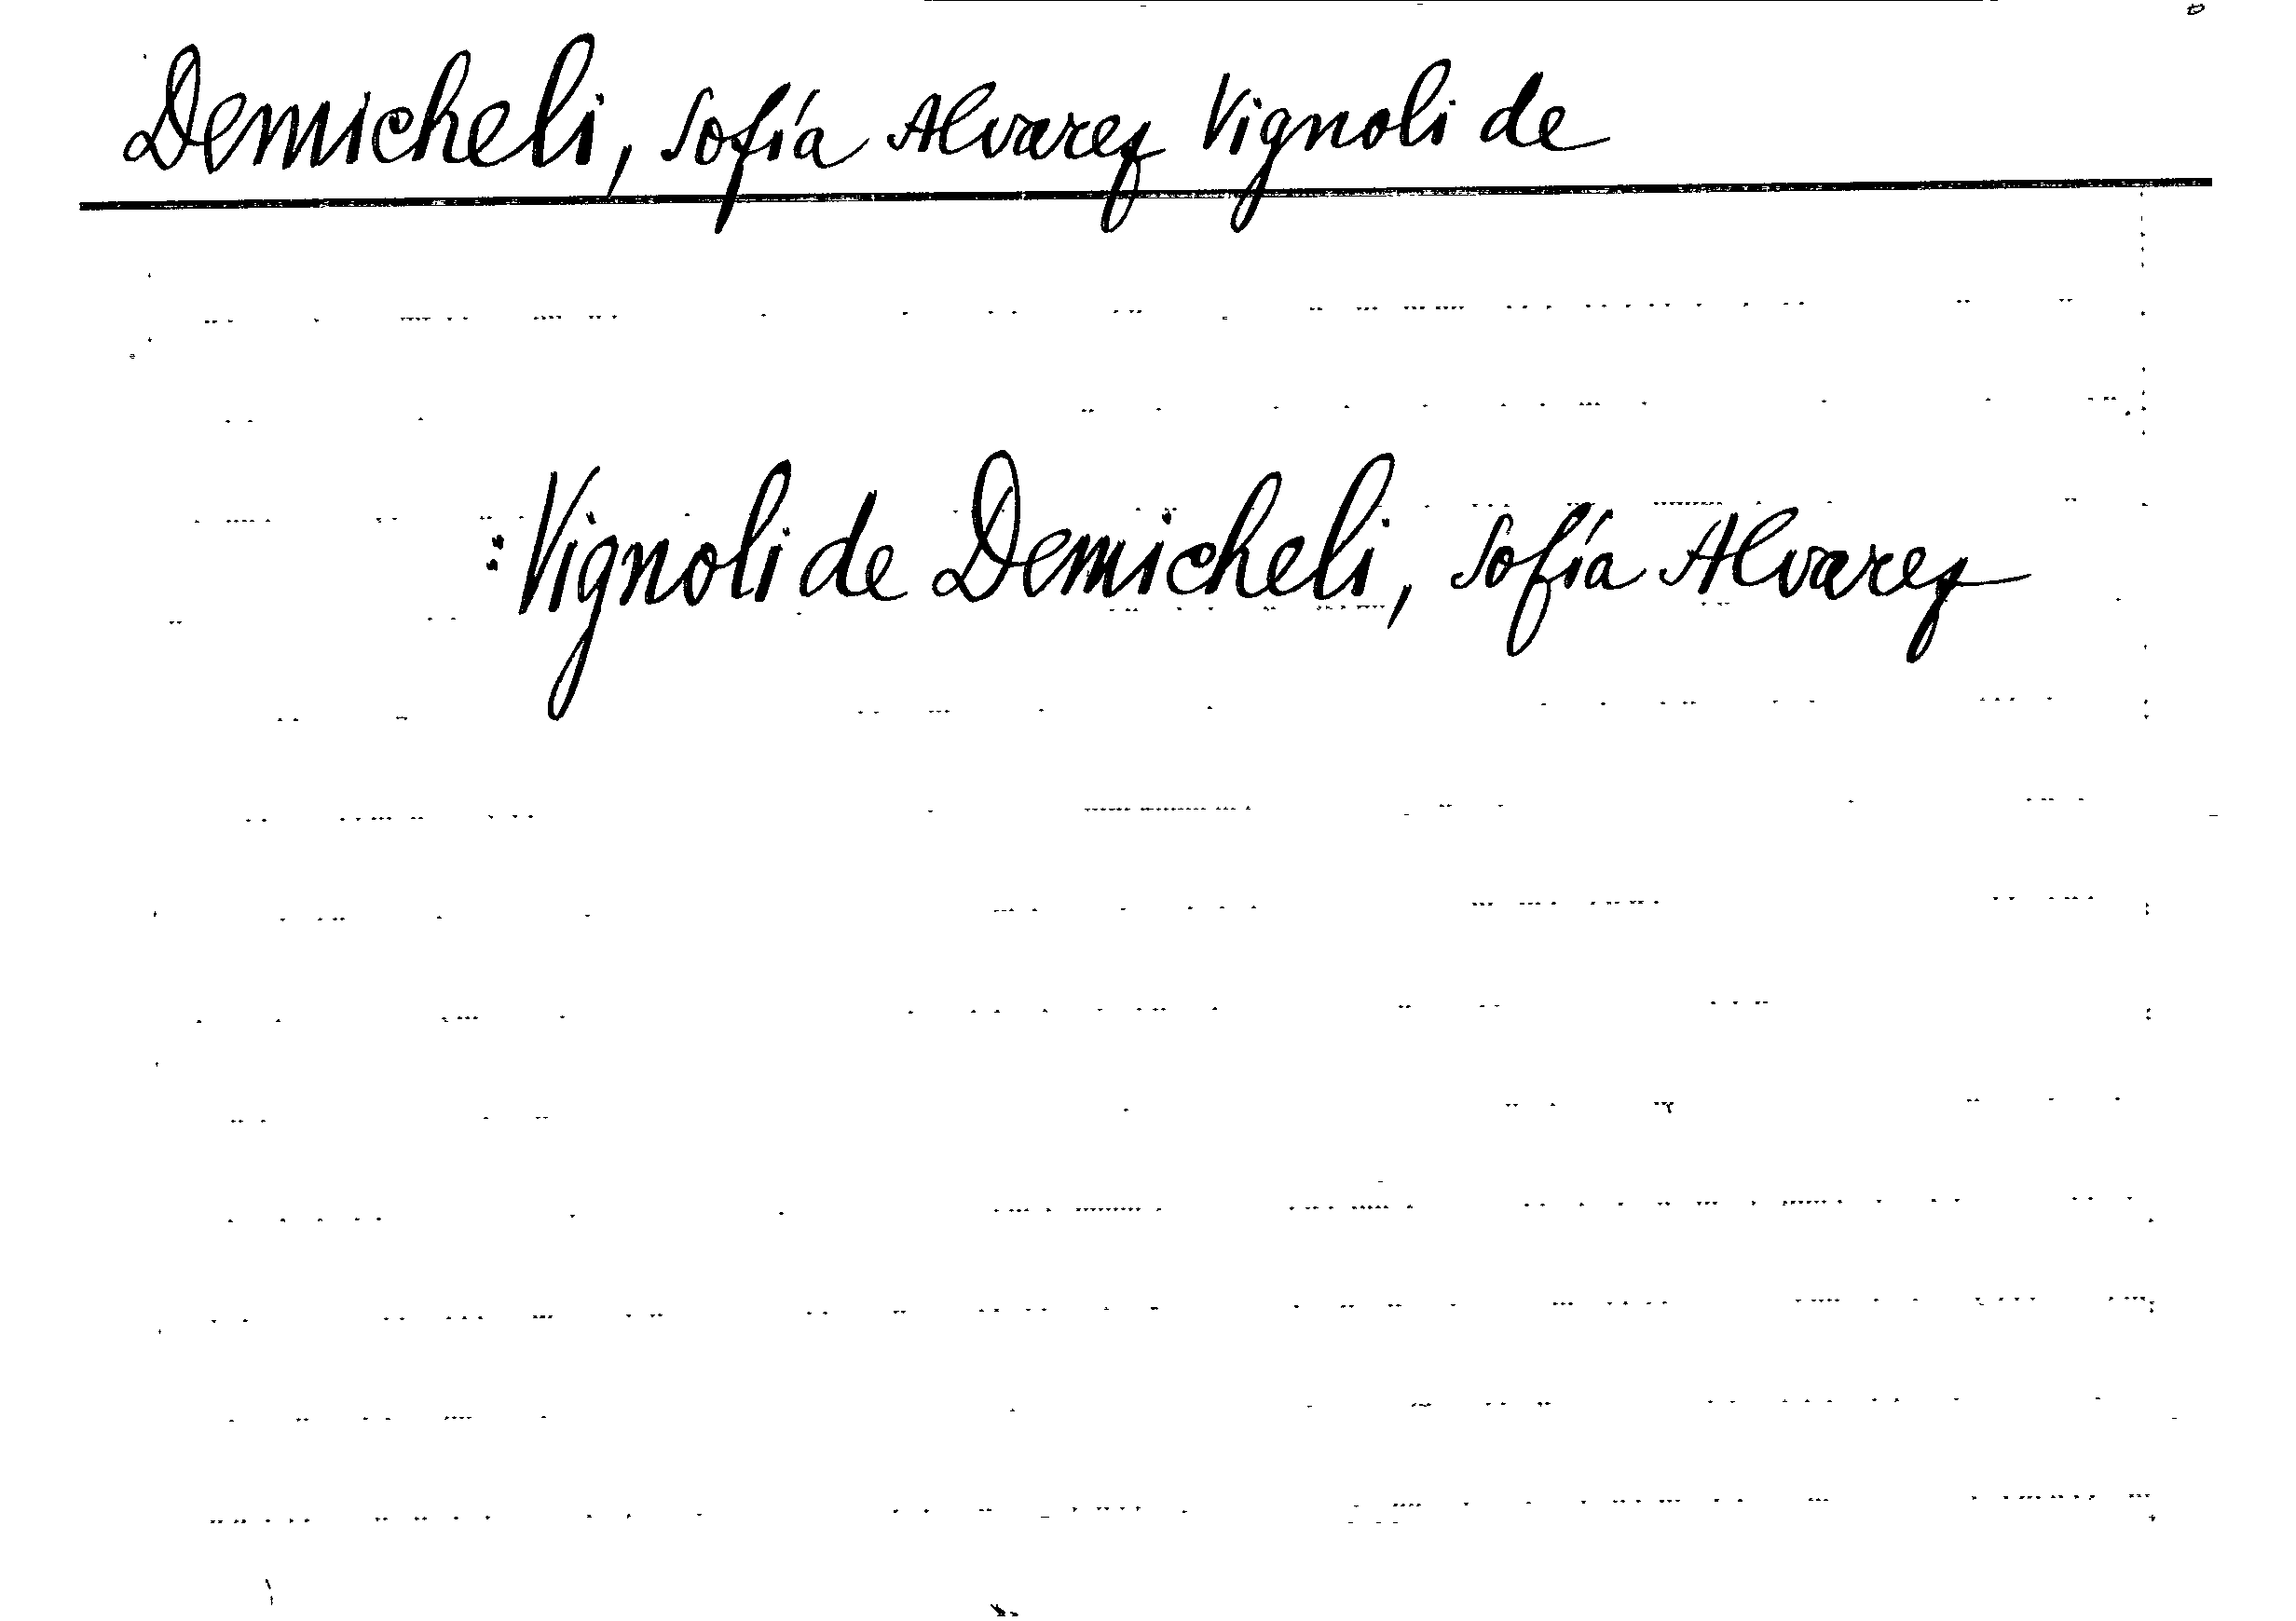 Demicheli, Sofía Alvarez Vignoli de
: Vignoli de Demicheli, Sofía Alvarez